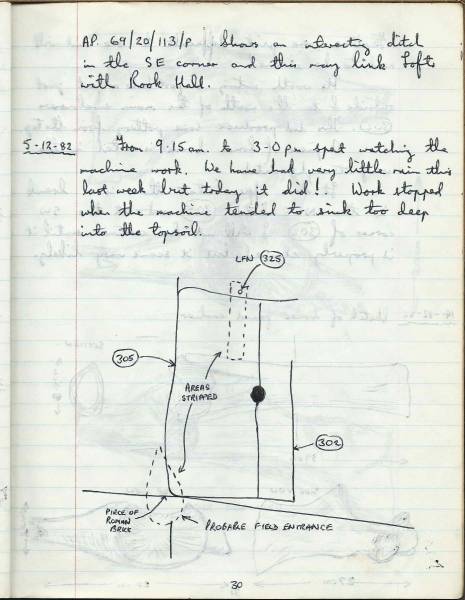 AP. 69/20/113/P shows an interesting ditch
in the SE corner and this may link Lofts
with Rook Hall.
5-12-82 From 9.15am. to 3-0pm spent watching the
machine work. We have had very little rain this
last week but today it did! Work stopped
when the machine tended to sink too deep
into the topsoil.
LFN 325
305
AREAS
STRIPPED
302
PIECE OF
ROMAN
BRICK
PROBABLE FIELD ENTRANCE
30